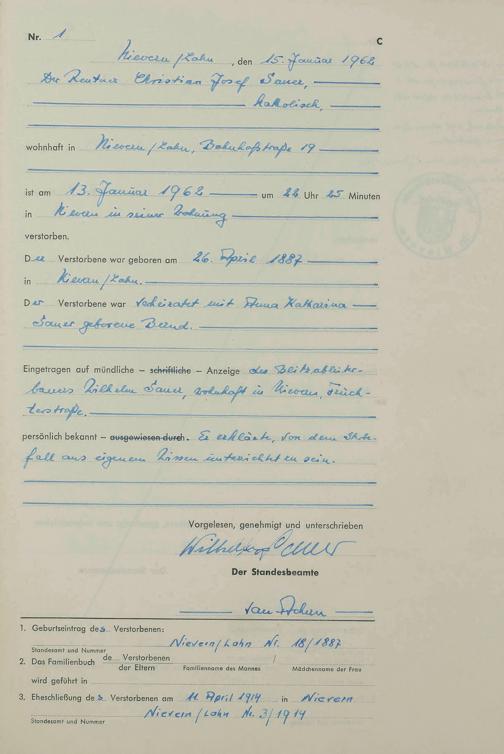 Nr. 1
C
Nievern/Lahn, den 15. Januar 1962
Der Rentner Christian Josef Sauer,
katholisch,
wohnhaft in Nievern/Lahn, Bahnhofstraße 19
ist am 13. Januar 1962 um 22 Uhr 25 Minuten
in Nievern in seiner Wohnung
verstorben.
Der Verstorbene war geboren am 26. April 1887
in Nievern/Lahn.
Der Verstorbene war verheiratet mit Anna Katharina
Sauer geborene
Eingetragen auf mündliche – schriftliche – Anzeige des Blitzableiter-
bauers Wilhelm Sauer, wohnhaft in Nievern, Früch-
terstraße.
persönlich bekannt – ausgewiesen durch. Er erklärte, von dem Sterbe-
fall aus eigenem Wissen unterrichtet zu sein.
Vorgelesen, genehmigt und unterschrieben
Wilhelm Sauer
Der Standesbeamte
1. Geburtseintrag des Verstorbenen:
Nievern/Lahn Nr. 18/1887
Standesamt und Nummer
2. Das Familienbuch de Verstorbenen /
der Eltern Familienname des Mannes Mädchenname der Frau
wird geführt in
3. Eheschließung des Verstorbenen am 11. April 1914 in Nievern
Nievern/Lahn Nr. 3/1914
Standesamt und Nummer